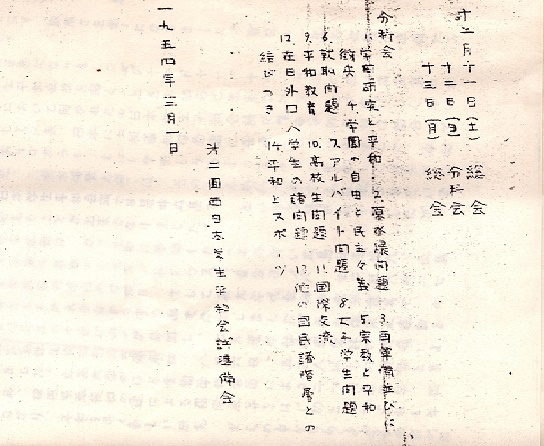 十二月十一日(土) 総会
十二日(日) 分科会
十三日(月) 総会
分科会
1.学問研究と平和 2.原水爆問題 3.再軍備並びに
徴兵 4.学園の自由と民主々義 5.宗教と平和
6.就職問題 7.アルバイト問題 8.女子学生問題
9.平和教育 10.高校生問題 11.国際交流
12.在日外口人学生の諸問題 13.他の国民諸階層との
結びつき 14.平和とスポーツ
才二回西日本学生平和会議準備会
一九五四年三月一日